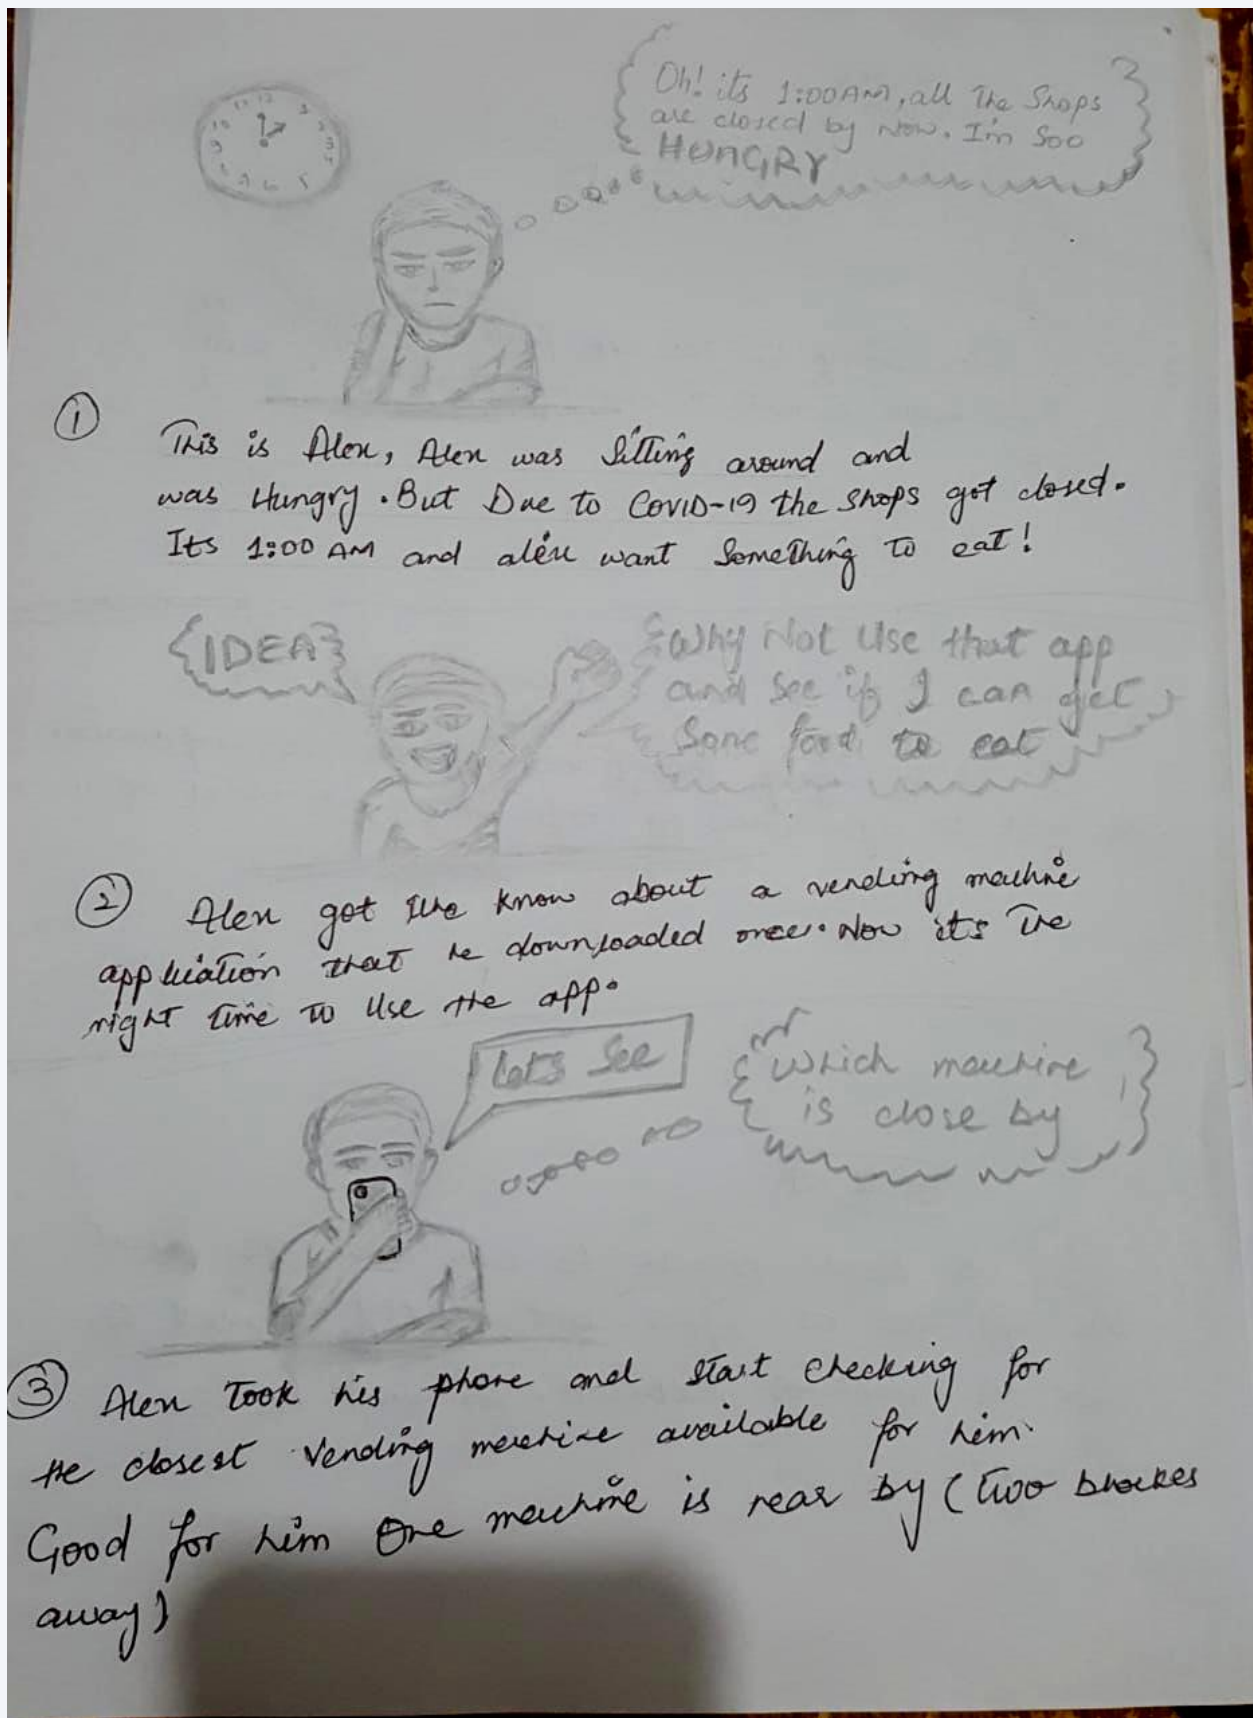 Oh! its 1:00AM, all the Shops
are closed by now. I'm Soo
HUNGRY
12
11
1
2
10
3
9
4
8
5
7
6
1
This is Alex, Alex was Sitting around and
was Hungry. But Due to COVID-19 the shops get closed.
Its 1:00 AM and alex want Something to eat!
IDEA
Why Not Use that app
and see if I can get
Some food to eat
2
Alex got the know about a vending machine
application that he downloaded once. Now its the
right time to Use the app.
Let's See
Which machine
is close by
3
Alex Took his phone and start checking for
the closest Vending machine available for him.
Good for him One machine is near by (two blockes
away)